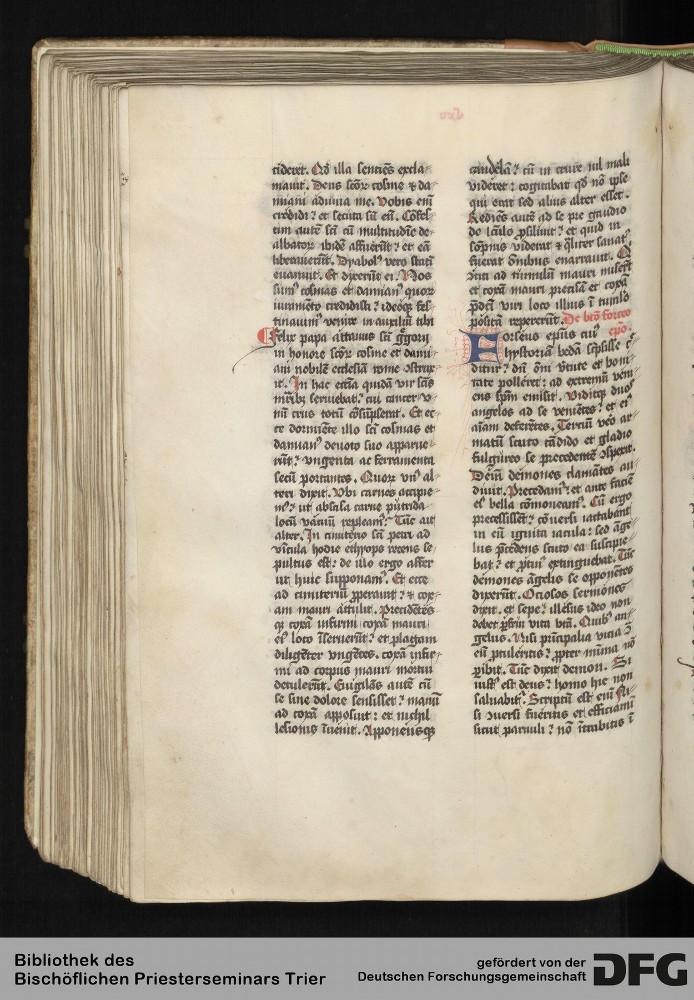 cideret. Qd illa sentiēs excla
mauit. Deus scōr cosme & da
miani adiuua me. Vobis enī
credidi: et secuta sū eū. Cōfes
tim autē scī cū multitudīe de
albatoꝝ ibidē affuerūt: et eā
liberauerūt. Dyabol' vero statī
euanuit. Et dixerūt ei. Nos
sum' cosmas et damian' quoꝝ
iuramēto credidisti: ideoqꝫ fes
tinauim' venire in auxiliū tibi
Felix papa attauus scī ggorij
in honore scōꝝ cosme et dami
ani nobilē ecclesiā rome ꝯstrux
it. In hac ecclīa quidā vir scīs
mrībꝫ seruiebat: cui cancer v
nū crus totū cōsūpserat. Et ec
ce dormiēte illo scī cosmas et
damian' deuoto suo apparue
rūt: vngenta ac ferramenta
secū portantes. Quoꝝ vn' al
teri dixit. Vbi carnes accipie
m': ut abscisa carne putrida
locū vacuū repleam': Tūc ait
alter. In cimiterio scī petri ad
vīcula hodie ethyops recens se
pultus est: de illo ergo affer
ut huic supponam'. Et ecce
ad cimiteriū ꝓperauit: & cox
am mauri attulit. Precidētes
qꝫ coxā infirmi coxā mauri
ei' loco īseruerūt: et plagam
diligēter vngētes. coxā infir
mi ad corpus mauri mortui
detulerūt. Euigilās autē cū
se sine dolore sensisset: manū
ad coxā apposuit: et nichil
lesionis īuenit. Apponensqꝫ
candelā: cū in crure nil mali
videret: cogitabat qd nō ipse
qui erat sed alius alter esset.
Rediens autē ad se pre gaudio
de lc̄ulo ꝓsiliuit: et quid in
sōpnis viderat & qliter sanat'
fuerat oīnibus enarrauit. Q
ꝯciti ad tumulū mauri miserūt
et coxā mauri precisā et coxā
pdcī viri loco illius ī tumlo
positā repererūt. De btō forceo
epō.
Forseus epūs cui'
hystoriam beda scpsisse c̄
ditur: dū ōnī v̄tute et boni
tate polleret: ad extremū veni
ens spm̄ emisit. Viditqꝫ duos
angelos ad se veniētes: et ei'
aīam deferētes. Terciū v̄o ar
matū scuto cādido et gladio
fulgureo se precedentē ꝯspexit.
Deīn demones clamātes au
diuit. Precedam': et ante faciē
ei' bella cōmoueam'. Cū ergo
precessissēt: cōuersi iactabant
in eū ignita iacula: sed āge
lus pcedens scuto ea suscipie
bat: et ptin' extinguebat. Tūc
demones āgelis se opponētes
dixerūt. Ociosos sermones
dixit. et sepe: illesus ideo non
debet pfrui vita btā. Quib' an
gelus. Nisi prīcipalia vicia ꝯ
eū ptuleritis: ꝓpter minīa nō
pibit. Tūc dixit demon. Si
iust' est deus: homo hic non
saluabit'. Scriptū est enī Ni
si ꝯuersi fueritis et efficiamī
sicut paruuli: nō ītrabitis ī
Bibliothek des
Bischöflichen Priesterseminars Trier
gefördert von der
Deutschen Forschungsgemeinschaft
DFG